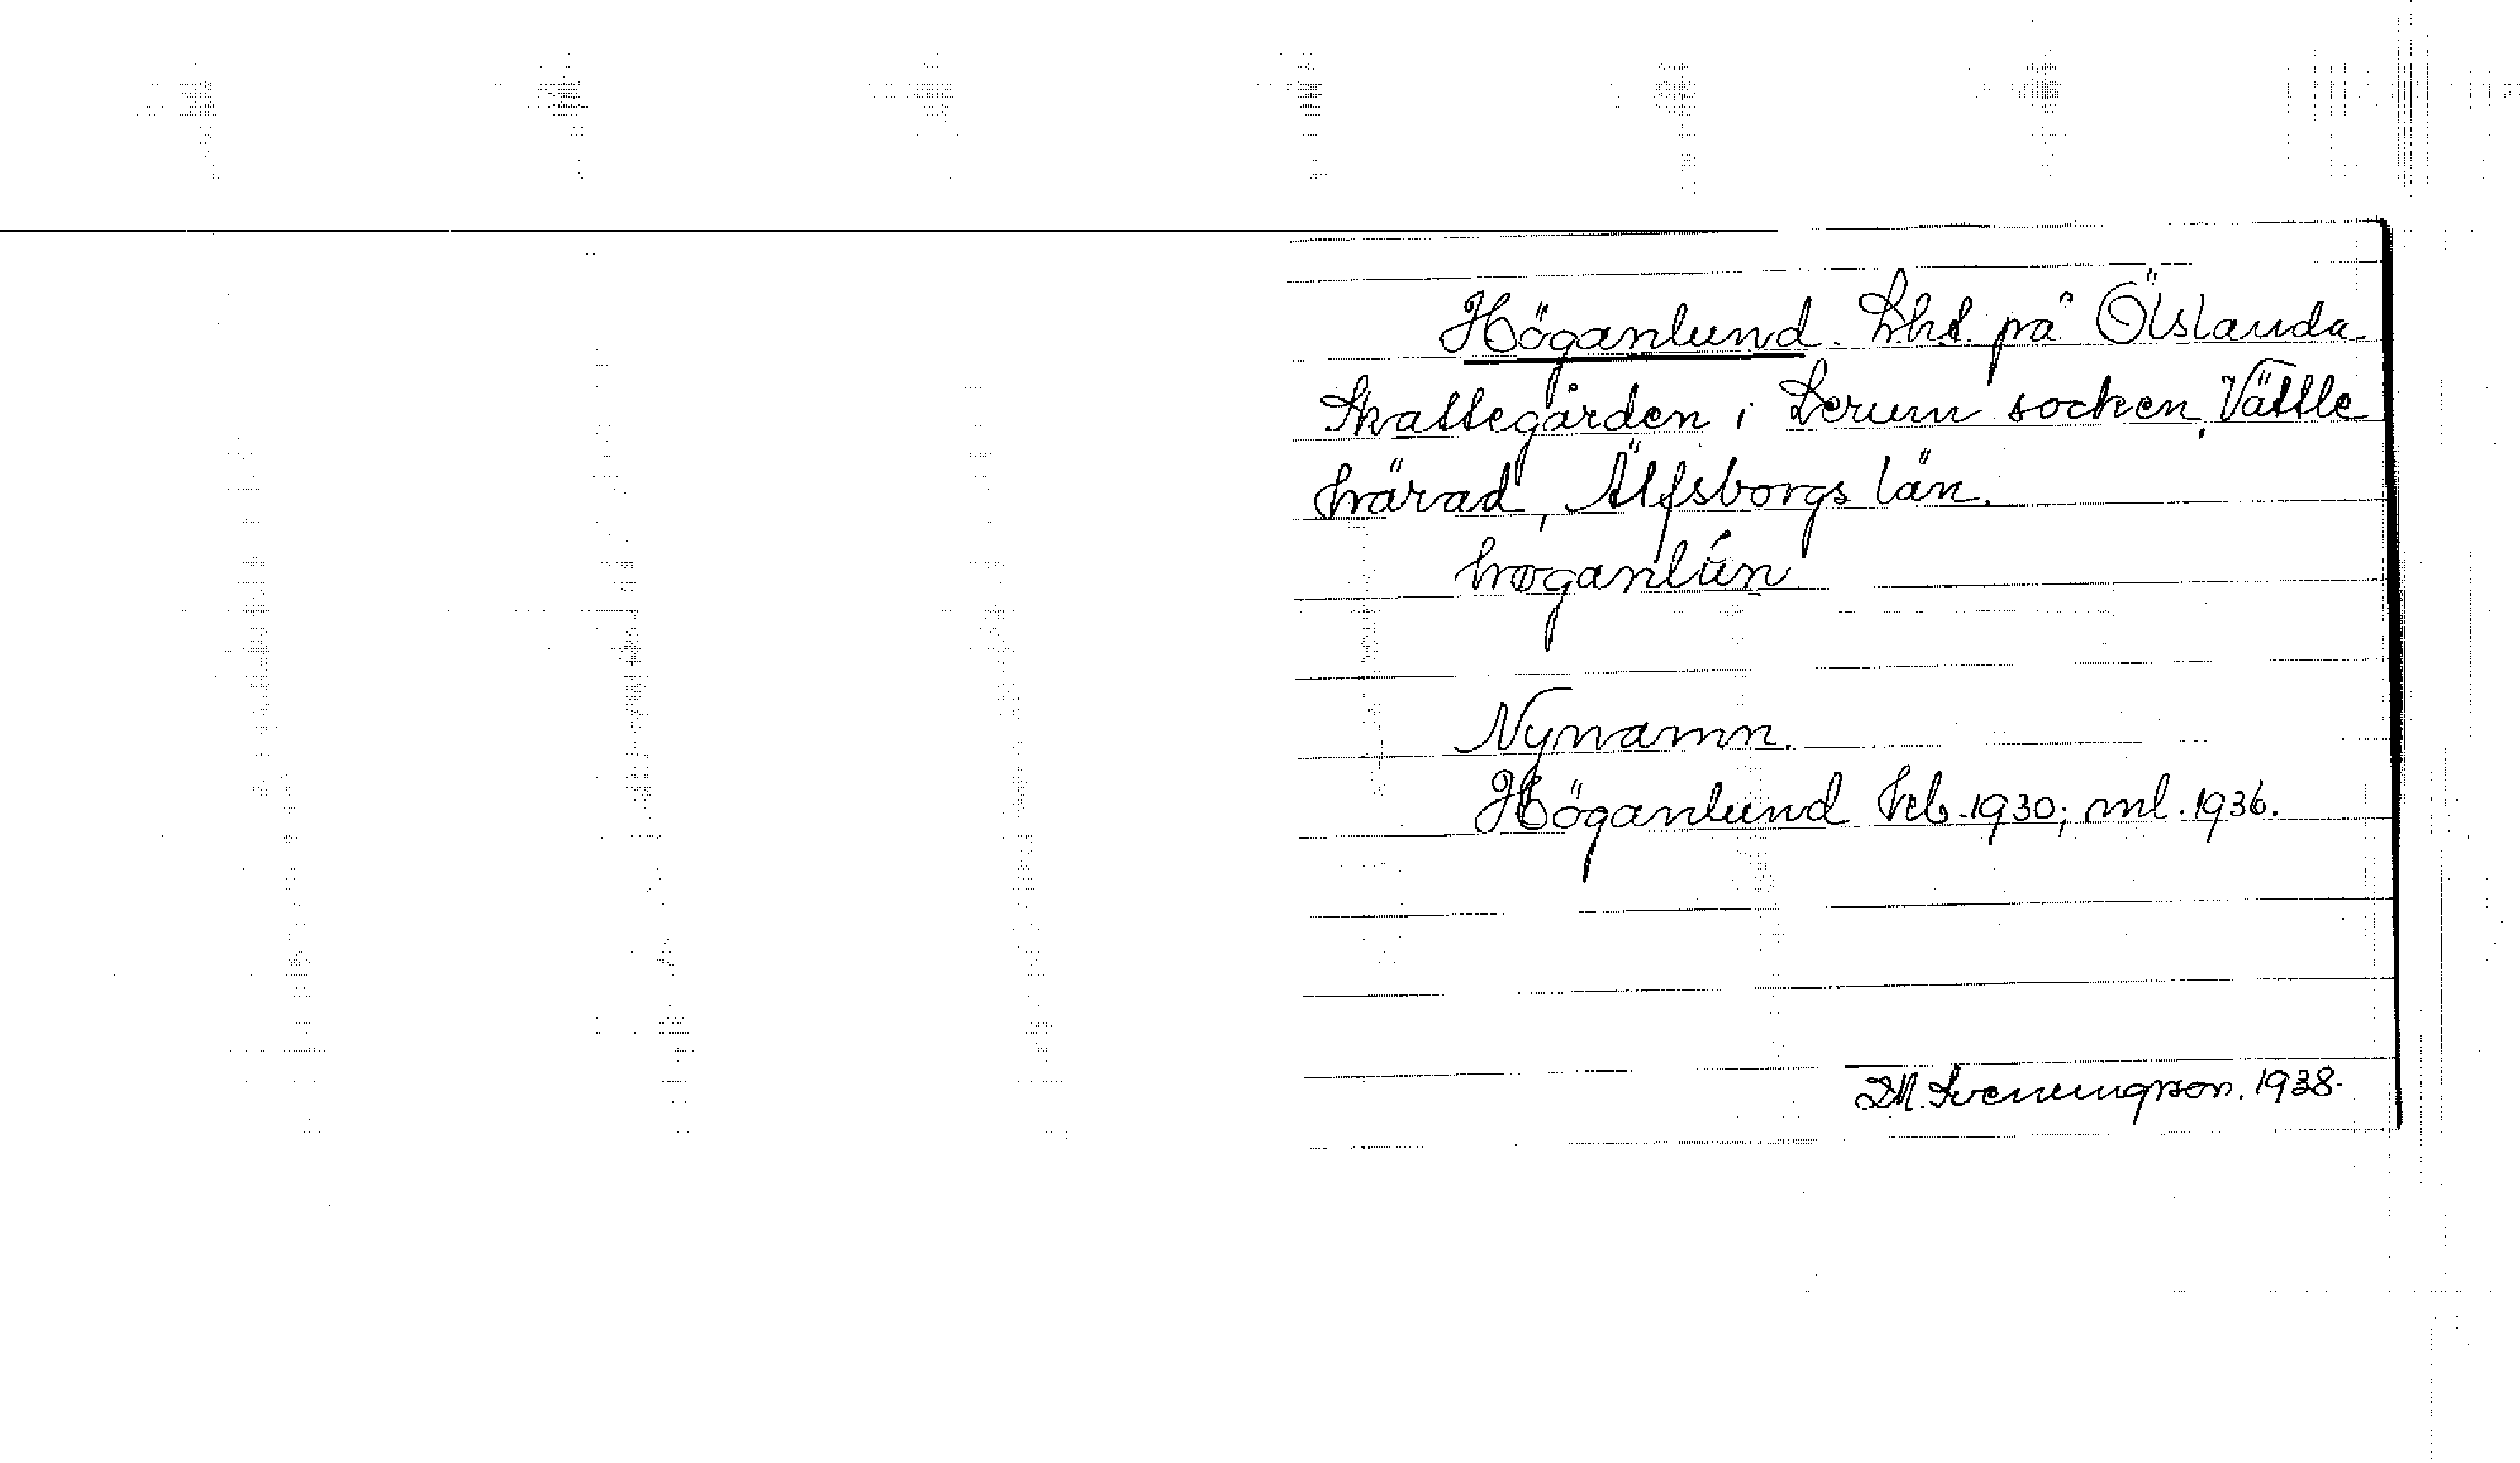 Höganlund. Lht. på Ölslanda
Skattegården i Lerum socken, Vättle
härad, Älfsborgs län.
høganlún
Nynamn.
Höganlund hfb. 1930; ml. 1936.
M. Sveningsson. 1938.